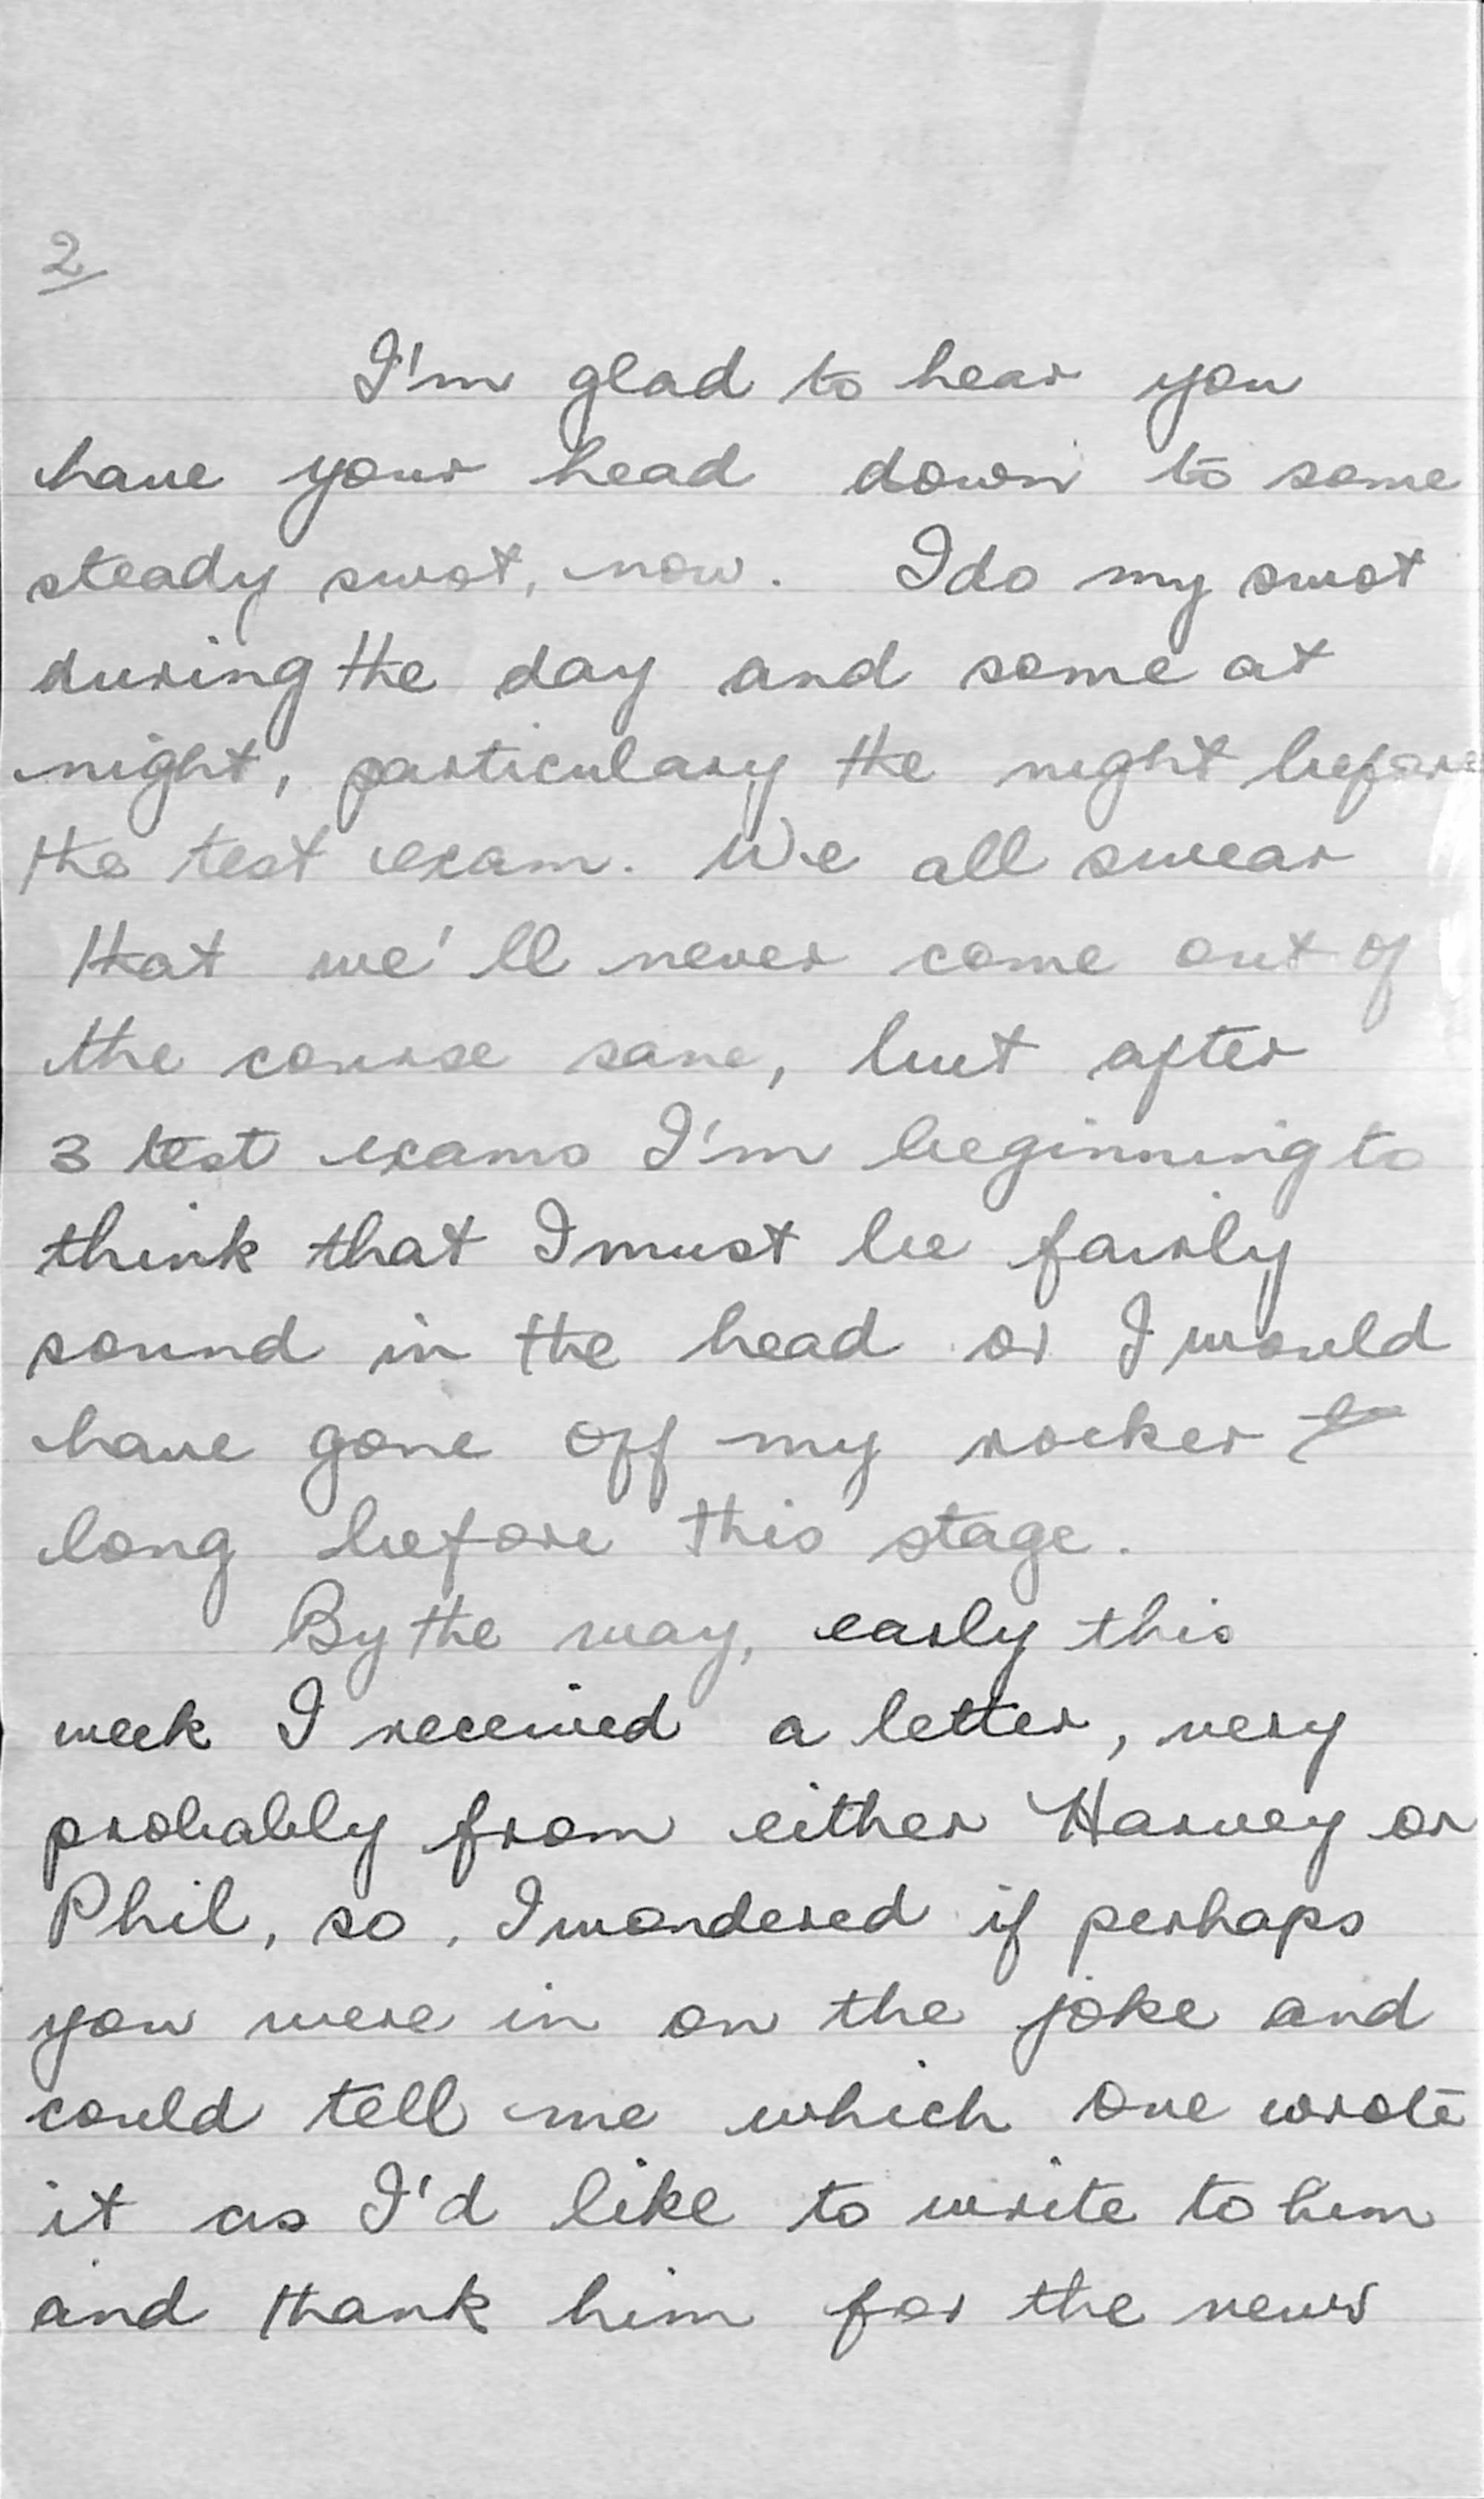 2
I'm glad to hear you
have your head down to some
steady swot, now. I do my swot
during the day and some at
night, particulary the night before
the test exam. We all swear
that we'll never come out of
the course sane, but after
3 test exams I'm beginning to
think that I must be fairly
sound in the head or I would
have gone off my rocker
long before this stage.
By the way, early this
week I received a letter, very
probably from either Harvey or
Phil, so, I wondered if perhaps
you were in on the joke and
could tell me which one wrote
it as I'd like to write to him
and thank him for the news